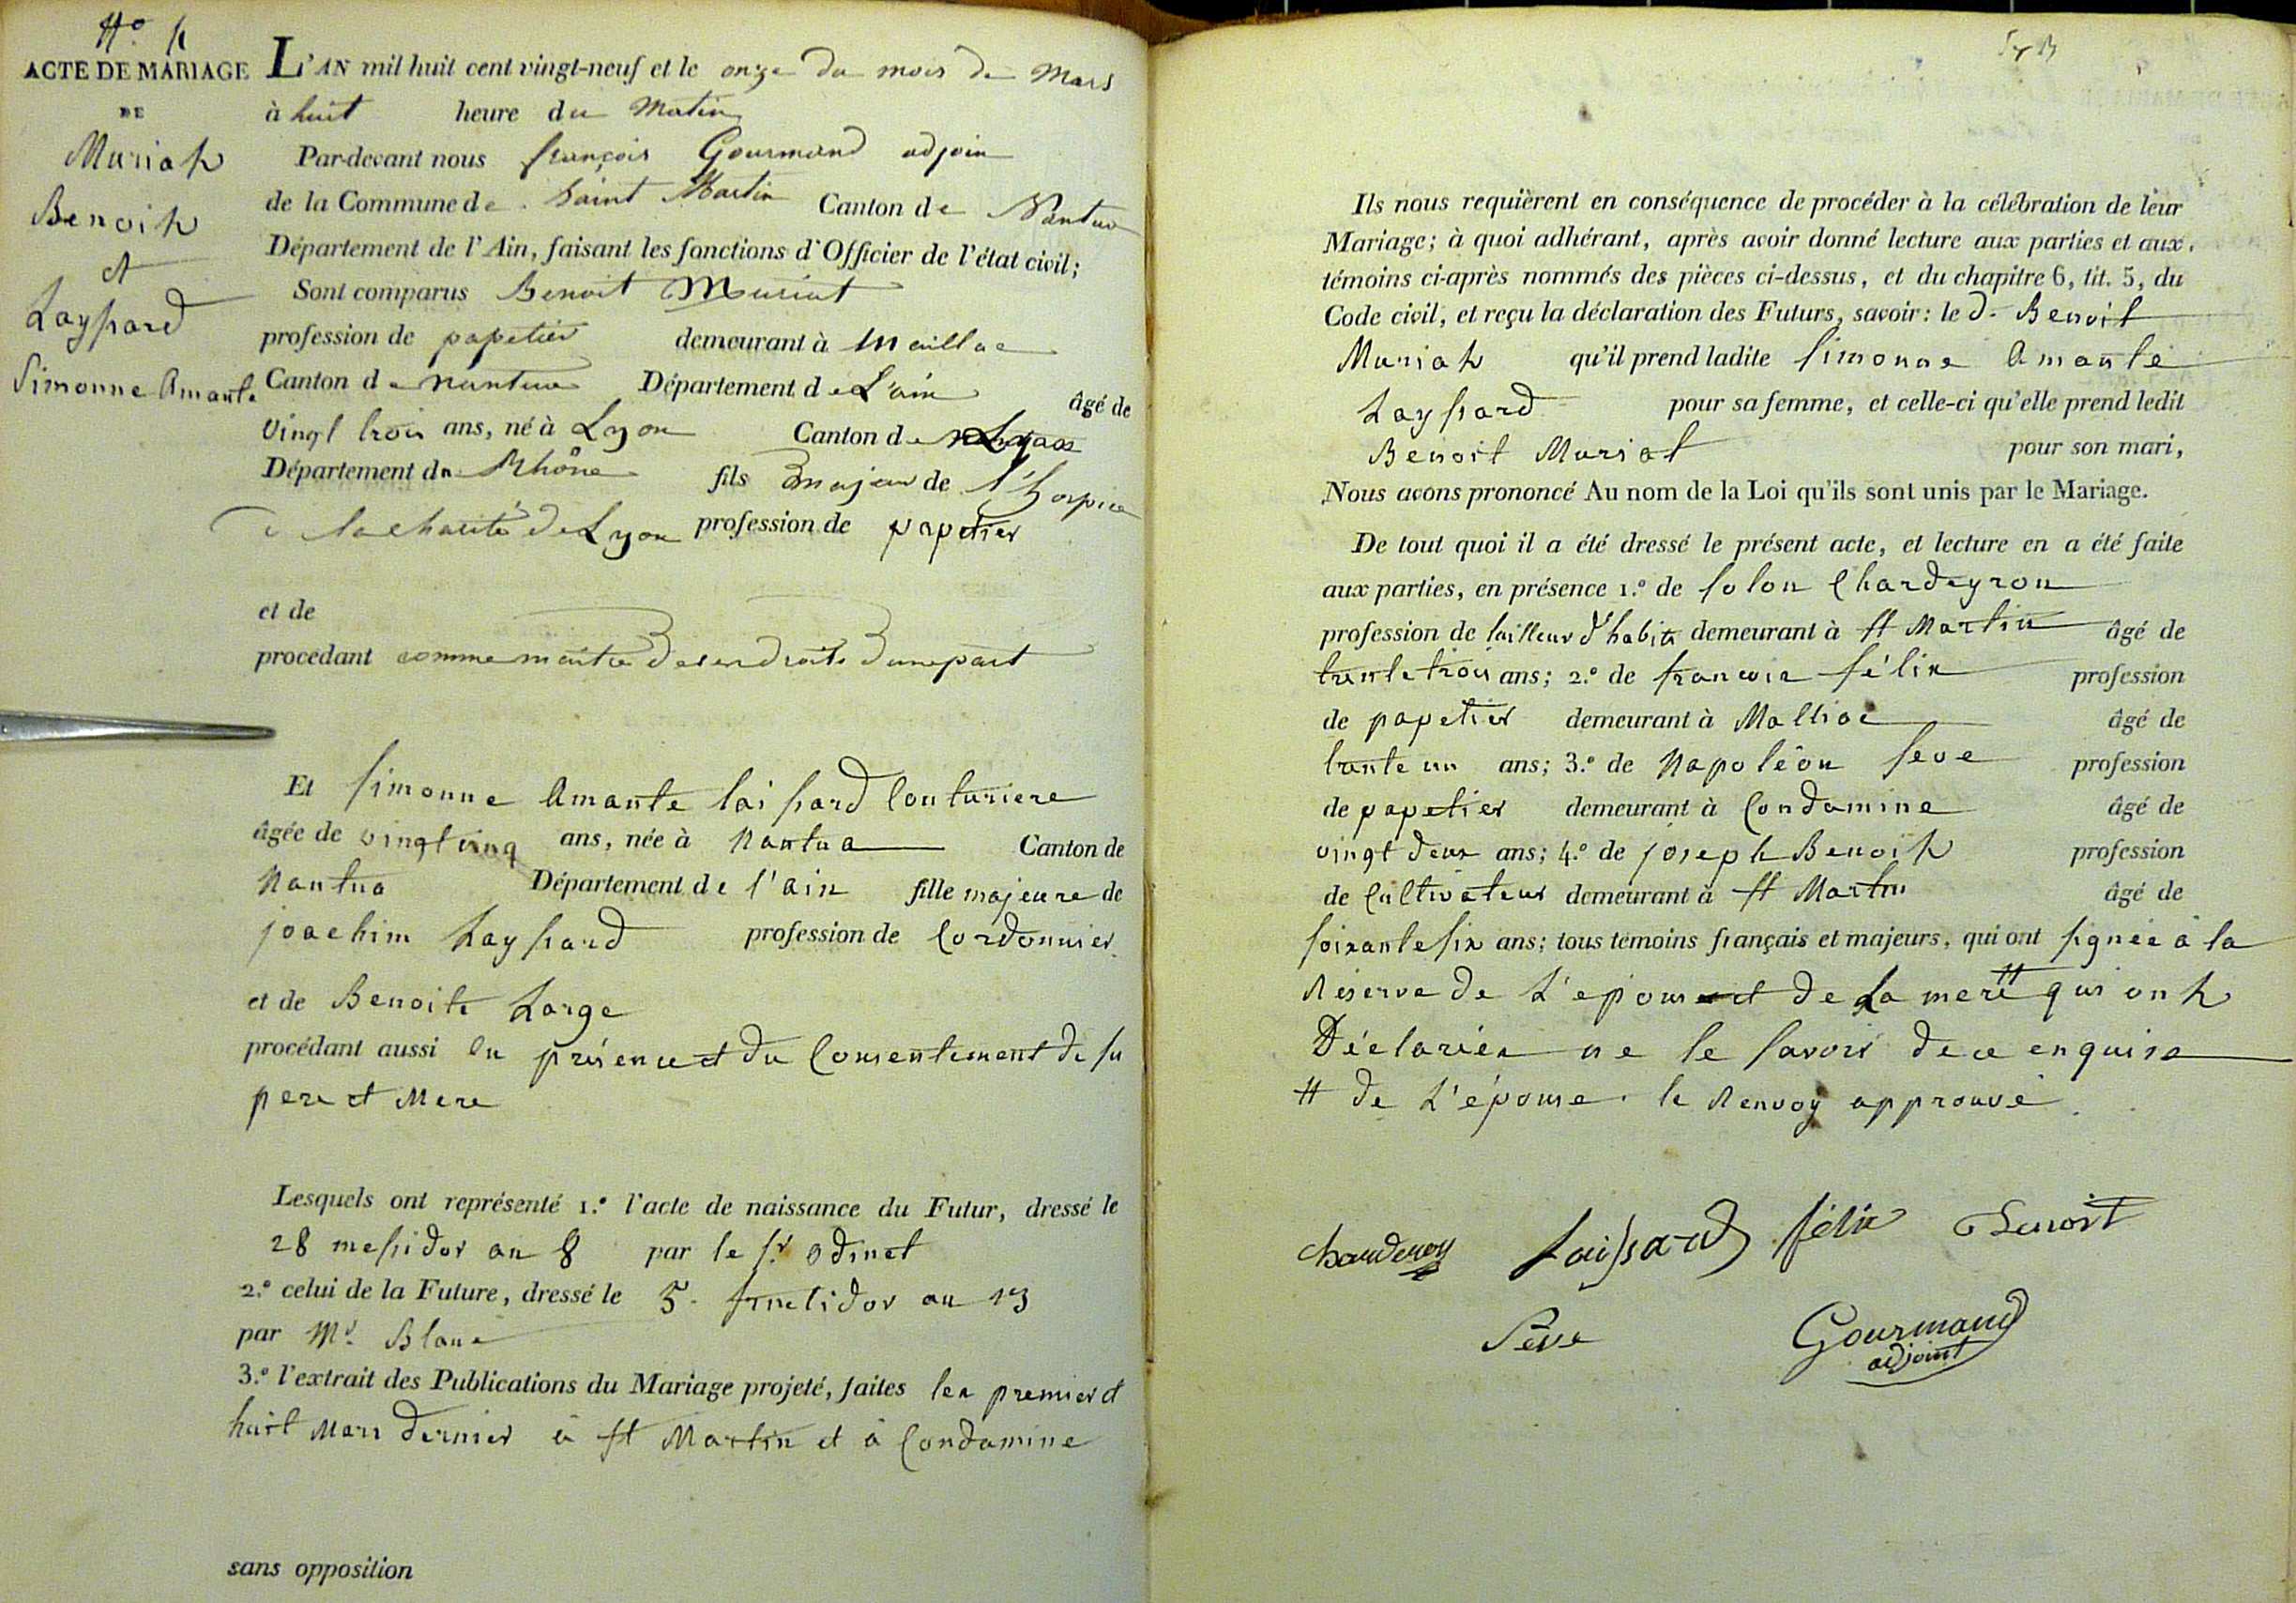 ACTE DE MARIAGE
DE
Muriat
Benoit
et
Layssard
Simonne Amante
L'AN mil huit cent vingt-neuf et le onze du mois de Mars
à huit heure du Matin
Par-devant nous françois Gourmand adjoin
de la Commune de Saint Martin Canton de Nantua
Département de l'Ain, faisant les fonctions d'Officier de l'état civil;
Sont comparus Benoit Muriat
profession de papetier demeurant à Maillac
Canton de nantua Département de L'ain âgé de
vingt trois ans, né à Lyon Canton de
Département du Rhône fils majeur de l'hospice
de la charité de Lyon profession de papetier
et de
procédant comme maitre de ses droits d'une part
Et Simonne Amante Laissard Couturiere
âgée de vingt cinq ans, née à Nantua Canton de
Nantua Département de l'ain fille majeure de
joachim Layssard profession de Cordonnier
et de Benoite Large
procédant aussi En présence et du Consentement de su
pere et Mere
Lesquels ont représenté 1.° l'acte de naissance du Futur, dressé le
28 messidor an 8 par le Sr odinet
2.° celui de la Future, dressé le 5 fructidor an 13
par Mr. Blanc
3.° l'extrait des Publications du Mariage projeté, faites les premier et
huit Mars dernier à St Martin et à Condamine
sans opposition
Ils nous requièrent en conséquence de procéder à la célébration de leur
Mariage; à quoi adhérant, après avoir donné lecture aux parties et aux
témoins ci-après nommés des pièces ci-dessus, et du chapitre 6, tit. 5, du
Code civil, et reçu la déclaration des Futurs, savoir: le d. Benoit
Muriat qu'il prend ladite Simonne Amante
Layssard pour sa femme, et celle-ci qu'elle prend ledit
Benoit Muriat pour son mari,
Nous avons prononcé Au nom de la Loi qu'ils sont unis par le Mariage.
De tout quoi il a été dressé le présent acte, et lecture en a été faite
aux parties, en présence 1.° de Solon Chardeyron
profession de tailleur d'habits demeurant à St Martin âgé de
trente trois ans; 2.° de francois félix profession
de papetier demeurant à Malliac âgé de
trente un ans; 3.° de Napoléon Seve profession
de papetier demeurant à Condamine âgé de
vingt deux ans; 4.° de joseph Benoit profession
de Cultivateur demeurant à St Martin âgé de
soixante six ans; tous témoins français et majeurs, qui ont signée à la
Réserve de L'epouse et de La mere # qui ont
Déclarées ne le savoir de ce enquise
# de L'épouse. le Renvoy approuvé
Laissard félix Benoit
Sève Gourmand
adjoint